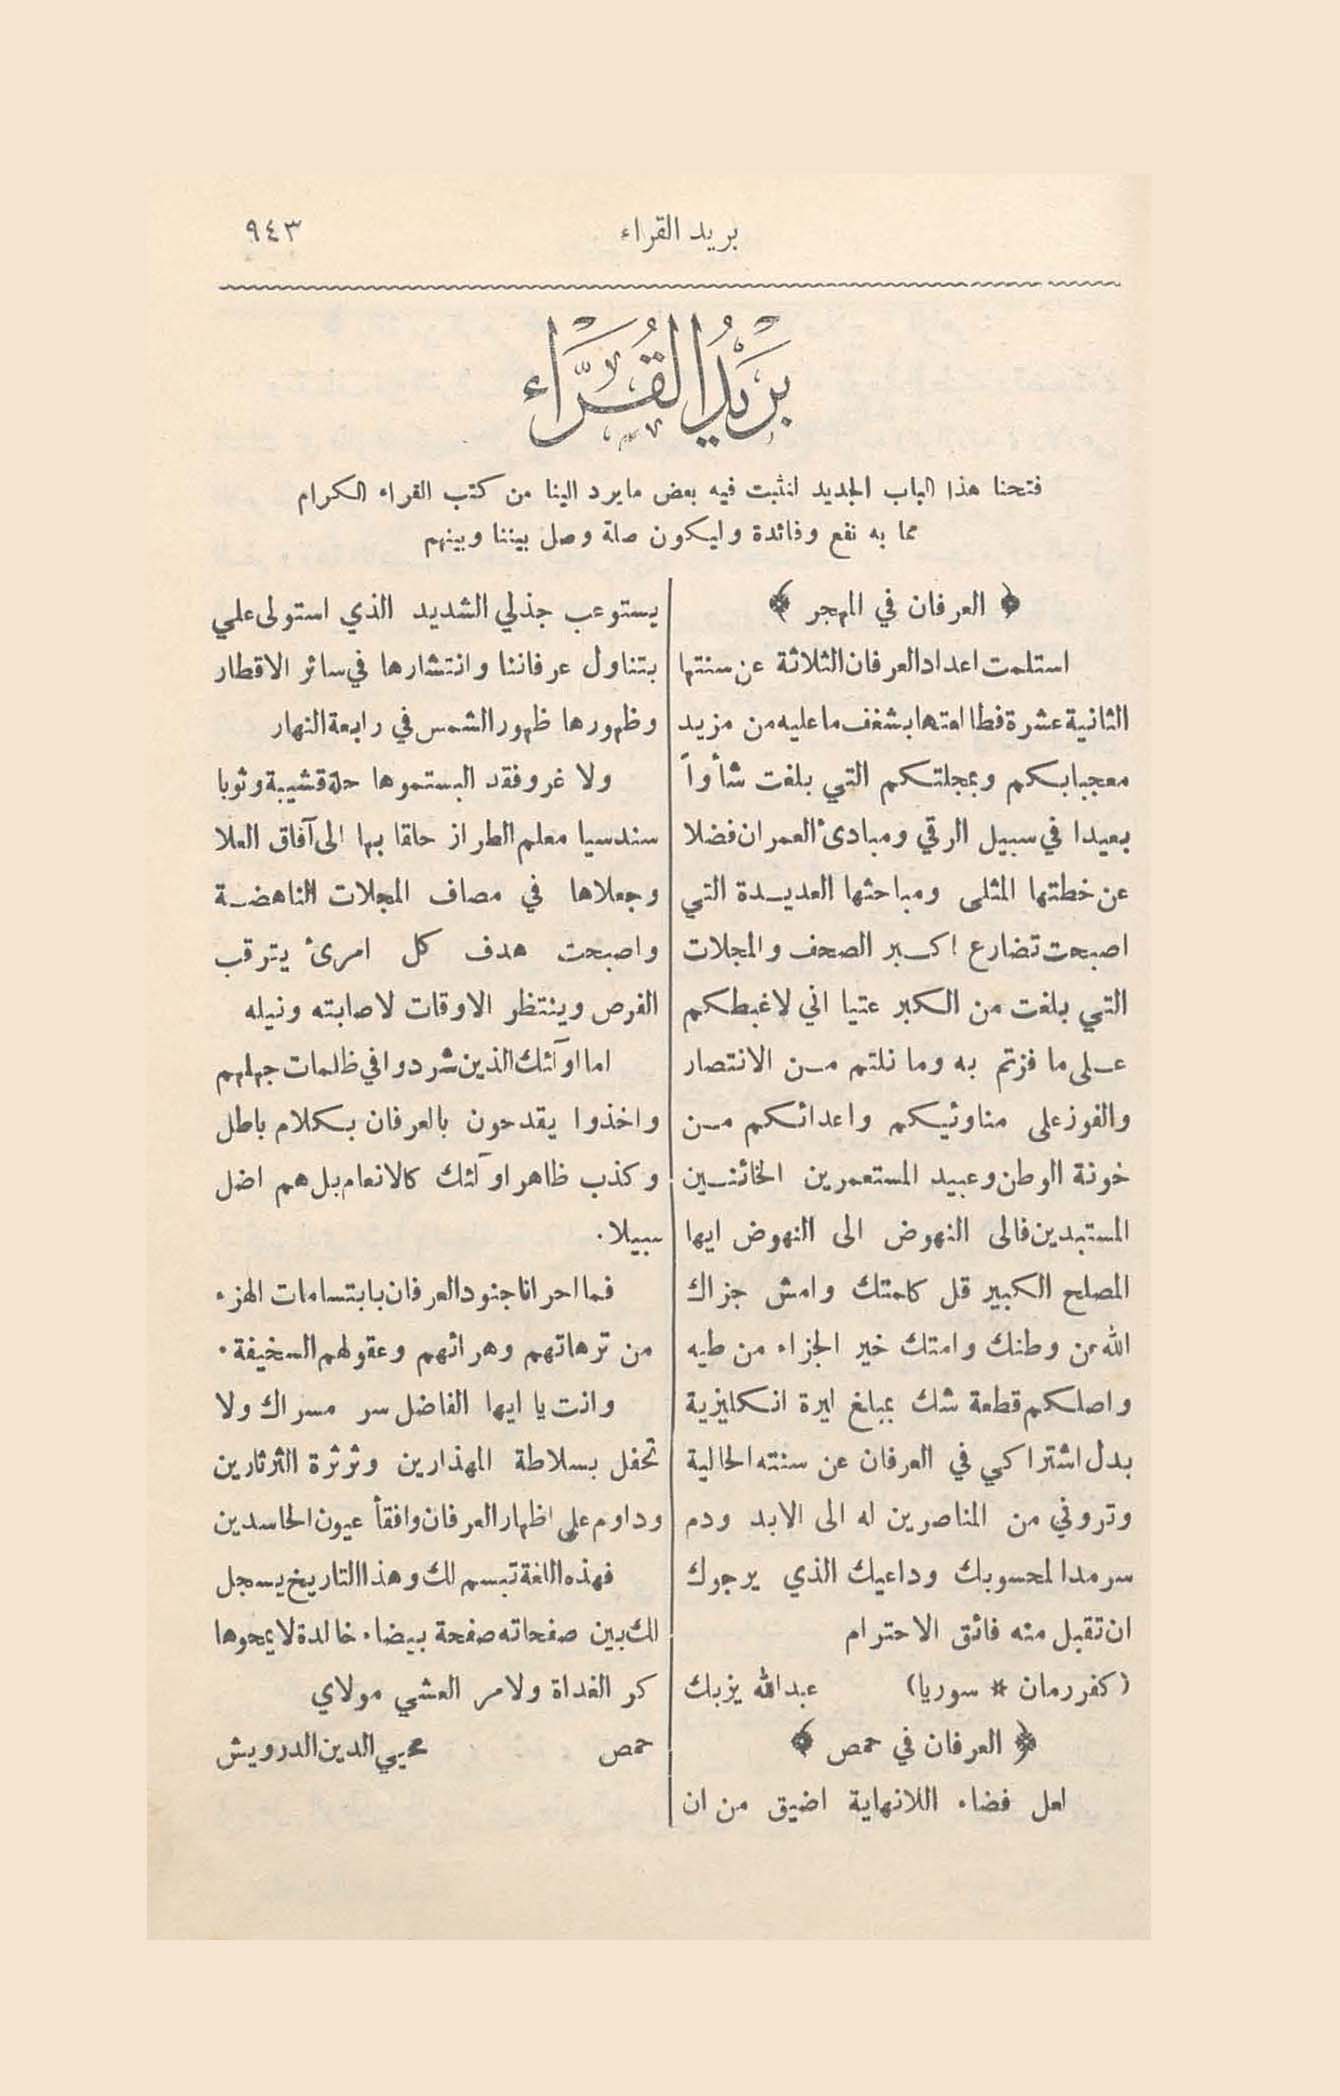 بريد القراء
٩٤٣
بَرِيْدُ القُرَّاء
فتحنا هذا الباب الجديد لنثبت فيه بعض ما يرد الينا من كتب القراء الكرام
مما به نفع وفائدة وليكون صلة وصل بيننا وبينهم
﴿ العرفان في المهجر ﴾
استلمت اعداد العرفان الثلاثة عن سنتها
الثانية عشرة فطالعتها بشغف ما عليه من مزيد
معجبا بكم وبمجلتكم التي بلغت شأواً
بعيدا في سبيل الرقي ومبادئ العمران فضلا
عن خطتها المثلى ومباحثها العديدة التي
اصبحت تضارع اكبر الصحف والمجلات
التي بلغت من الكبر عتيا اني لاغبطكم
على ما فزتم به وما نلتم من الانتصار
والفوز على مناوئيكم واعدائكم من
خونة الوطن وعبيد المستعمرين الخائنين
المستبدين فالى النهوض الى النهوض ايها
المصلح الكبير قل كلمتك وامش جزاك
الله عن وطنك وامتك خير الجزاء من طيه
واصلكم قطعة شك بمبلغ ليرة انكليزية
بدل اشتراكي في العرفان عن سنته الحالية
وتروني من المناصرين له الى الابد ودم
سرمدا لمحسوبك وداعيك الذي يرجوك
ان تقبل منه فائق الاحترام
(كفررمان * سوريا) عبدالله يزبك
﴿ العرفان في حمص ﴾
لعل فضاء اللانهاية اضيق من ان
يستوعب جذلي الشديد الذي استولى علي
بتناول عرفاننا وانتشارها في سائر الاقطار
وظهورها ظهور الشمس في رابعة النهار
ولا غرو فقد البستموها حلة قشيبة وثوبا
سندسيا معلم الطراز حلقا بها الى آفاق العلا
وجعلاها في مصاف المجلات الناهضة
واصبحت هدف كل امرئ يترقب
الفرص وينتظر الاوقات لاصابته ونيله
اما اولئك الذين شردوا في ظلمات جهلهم
واخذوا يقدحون بالعرفان بكلام باطل
وكذب ظاهر اولئك كالانعام بل هم اضل
سبيلا.
فما احرانا جنود العرفان بابتسامات الهزء
من ترهاتهم وهرائهم وعقولهم السخيفة.
وانت يا ايها الفاضل سر مسراك ولا
تحفل بسلاطة المهذارين وثرثرة الثرثارين
وداوم على اظهار العرفان وافقأ عيون الحاسدين
فهذه اللغة تبسم لك وهذا التاريخ يسجل
لك بين صفحاته صفحة بيضاء خالدة لا يمحوها
كر الغداة ولا مر العشي مولاي
حمص محيي الدين الدرويش